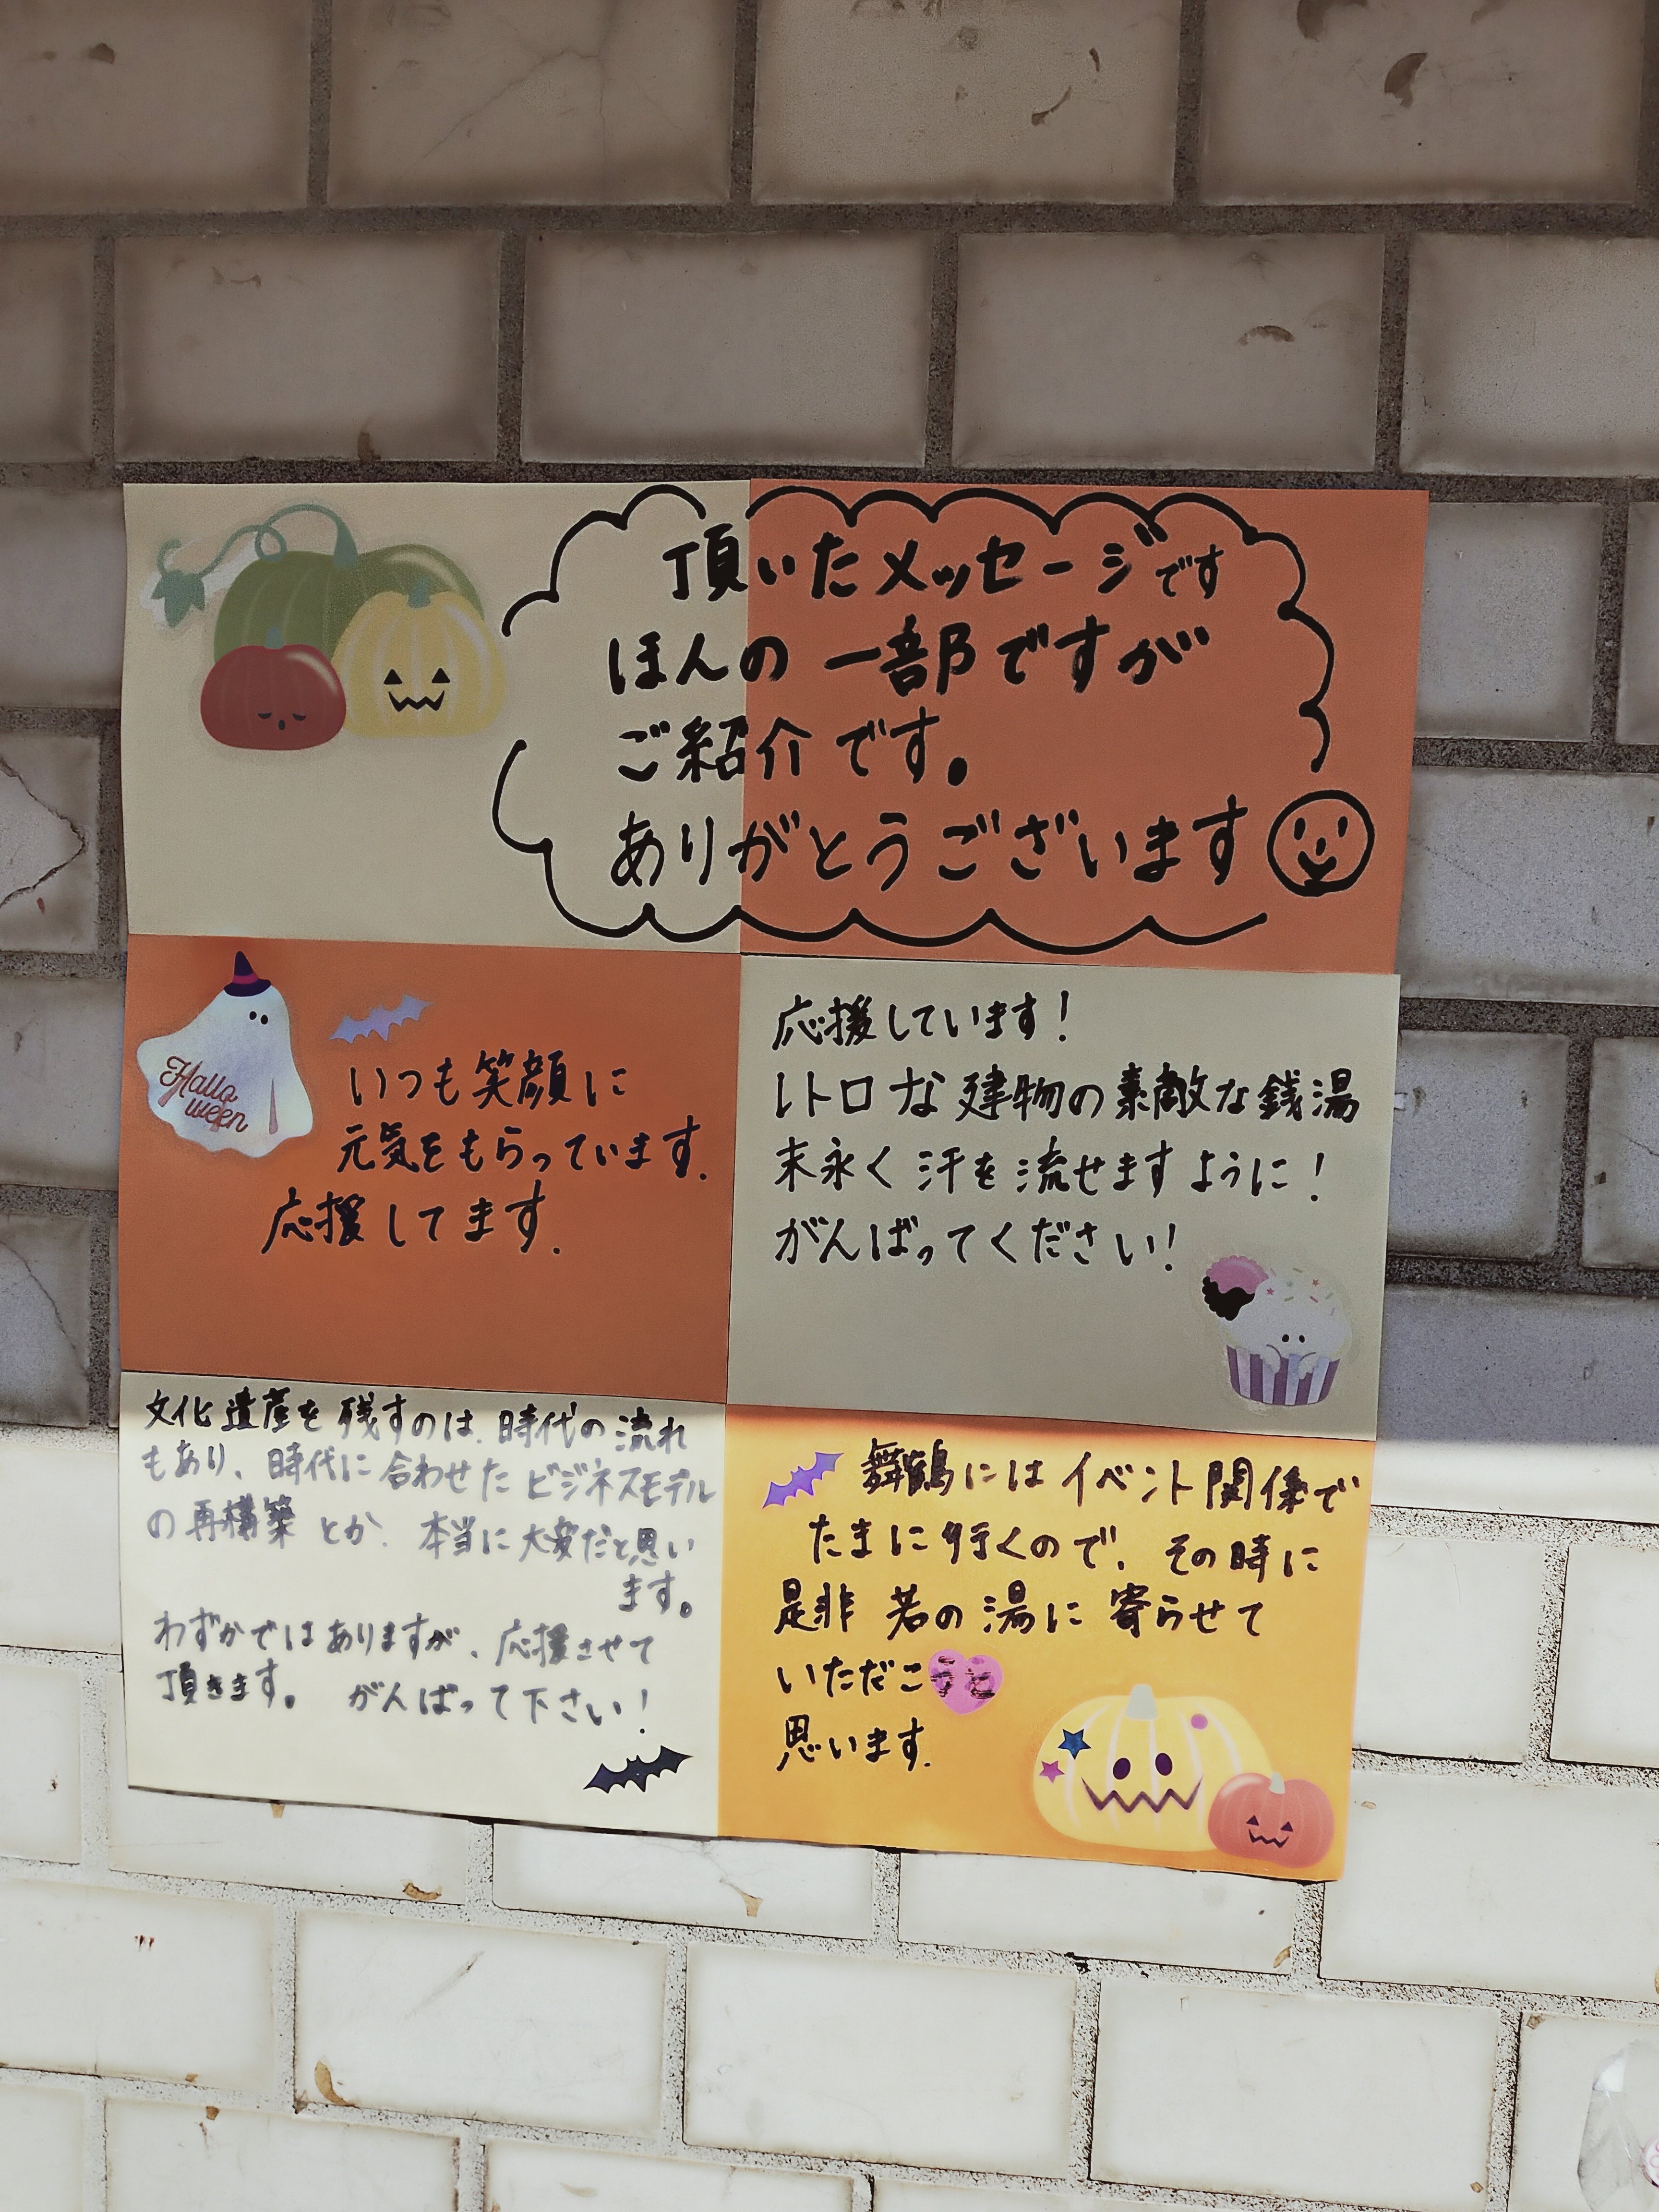 頂いたメッセージです
ほんの一部ですが
ご紹介です。
ありがとうございます
Hallo
ween
いつも笑顔に
元気をもらっています.
応援してます.
応援しています!
レトロな建物の素敵な銭湯
末永く汗を流せますように!
がんばってください!
文化遺産を残すのは、時代の流れ
もあり、時代に合わせたビジネスモデル
の再構築とか、本当に大変だと思い
ます。
わずかではありますが、応援させて
頂きます。がんばって下さい!
舞鶴にはイベント関係で
たまに行くので、その時に
是非若の湯に寄らせて
いただこうと
思います.